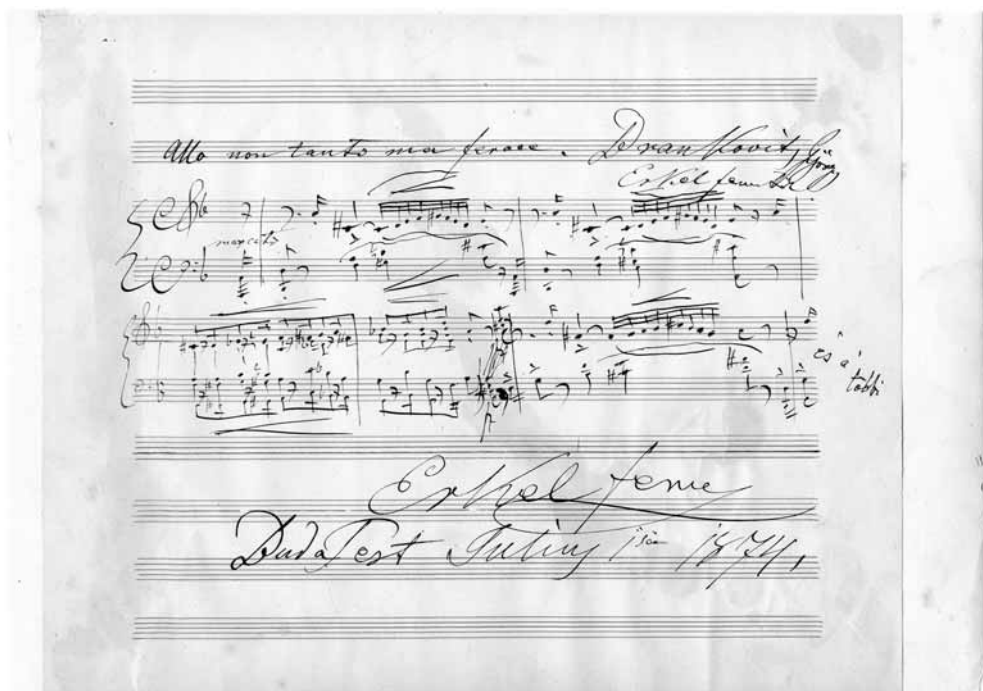 Allo non tanto ma feroce. Brankovits György
Erkel Ferencztől
marcato
és a'
többi
Erkel Ferencz
BudaPest Július 1sőn 1874.